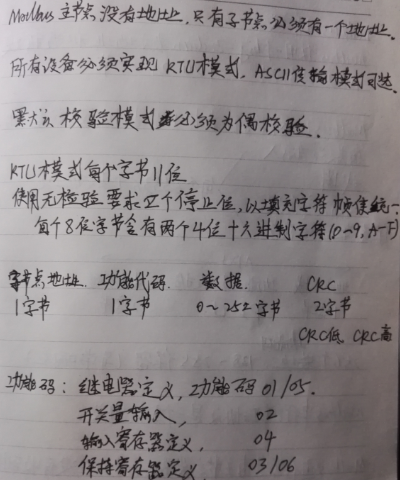 Modbus 主节点没有地址,只有子节点必须有一个地址.
所有设备必须实现 RTU模式, ASCII传输模式可选.
默认校验模式必须为偶校验.
RTU模式每个字节11位
使用无检验要求2个停止位,以填充字符帧使统一.
每个8位字节含有两个4位十六进制字符(0~9, A-F)
子节点地址 功能代码 数据 CRC
1字节 1字节 0~252字节 2字节
CRC低 CRC高
功能码: 继电器定义, 功能码 01/05.
开关量输入, 02
输入寄存器定义, 04
保持寄存器定义 03/06